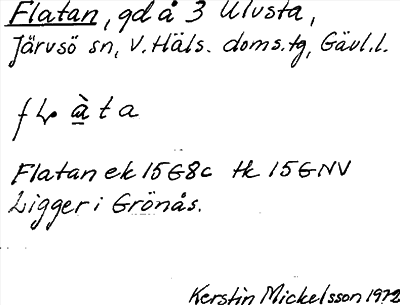 Flatan, gd å 3 Ulvsta,
Järvsö sn, V. Häls. doms.tg, Gävl.l.
Flatan ek 15G8c tk 15GNV
Ligger i Grönås.
Kerstin Mickelsson 1972